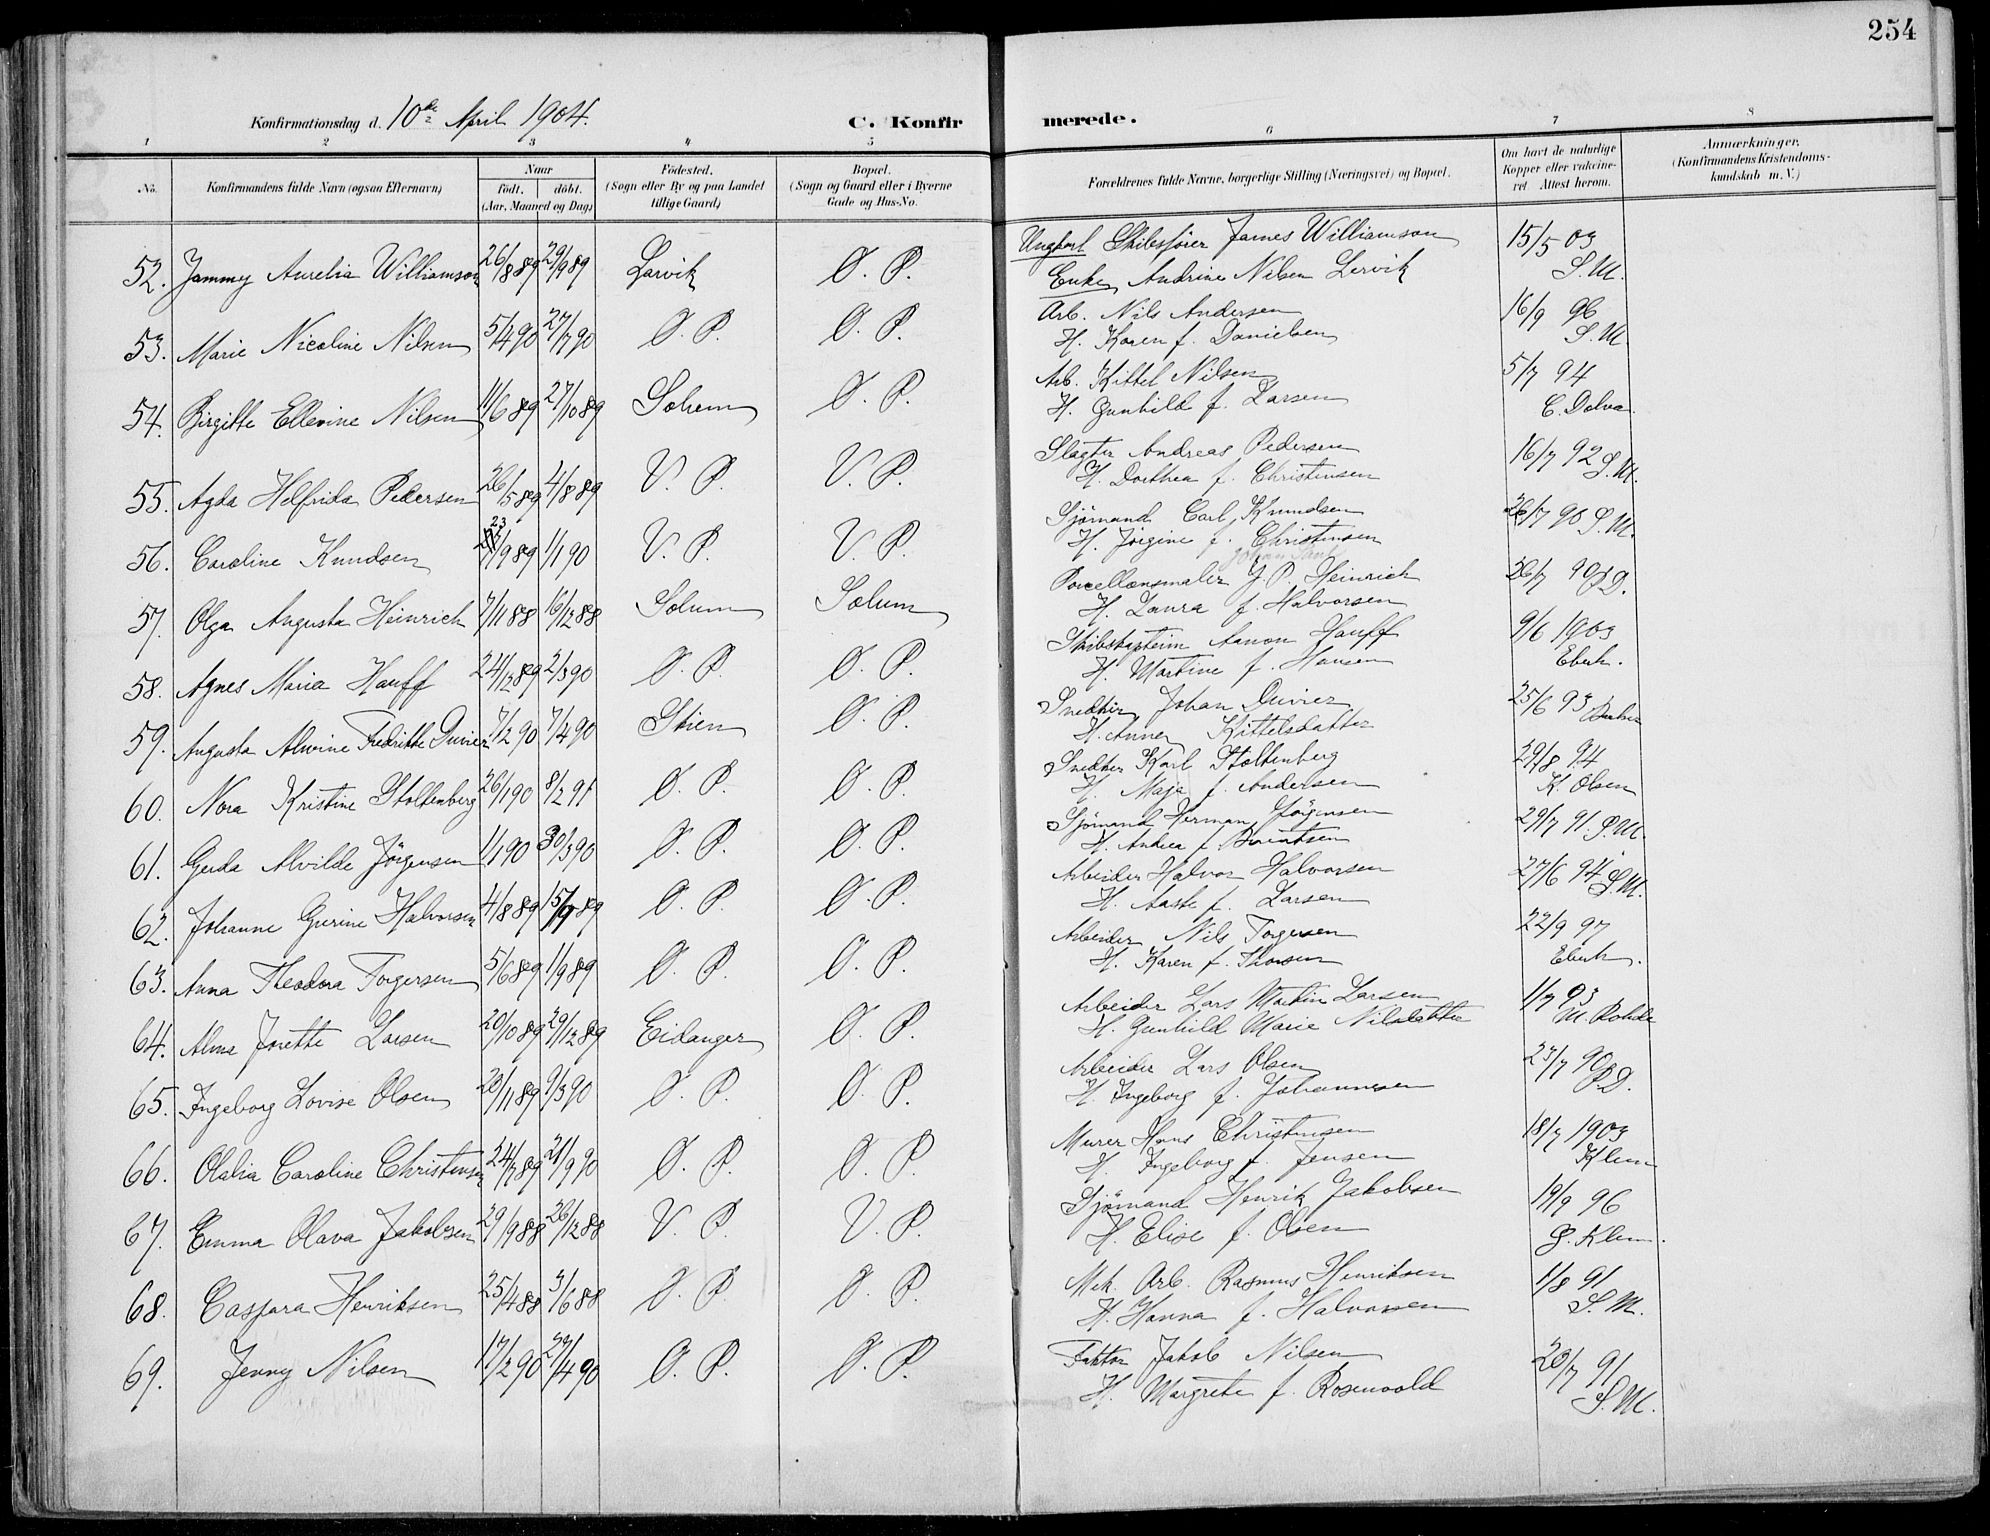 254
Konfirmationsdag d. 10de April 1904.
C. Konfirmerede.
1 2 3 4 5 6 7 8
No. Konfirmandens fulde Navn (ogsaa Efternavn) Naar født. døbt. (Aar, Maaned og Dag) Födested. (Sogn eller By og paa Landet tillige Gaard) Bopæl. (Sogn og Gaard eller i Byerne Gade og Hus-No. Forældrenes fulde Navne, borgerlige Stilling (Næringsvei) og Bopæl. Om havt de naturlige Kopper eller vaccineret Attest herom. Anmærkninger. (Konfirmandens Kristendomskundskab m. V.)
52. Jammy Aurelia Williamson 26/8 89 29/9 89 Larvik Ø. P. Ungkarl Skibsfører James Williamson 15/5 03
Enke Andrine Nilsen Lervik S. M.
53. Marie Nicoline Nilsen 5/4 90 27/7 90 Ø. P. Ø. P. Arb. Nils Andersen 16/9 96
H. Karen f. Danielsen S. M.
54. Birgitte Ellevine Nilsen 11/6 89 27/10 89 Solum Ø. P. Arb. Kittel Nilsen 5/7 94
H. Gunhild f. Larsen C. Dolva.
55. Agda Helfrida Pedersen 26/5 89 4/8 89 V. P. V. P. Slagter Andreas Pedersen 16/7 92 S. M.
H. Dorthea f. Christensen
56. Caroline Knudsen 23/9 89 1/1 90 V. P. V. P. Sjømand Carl Knudsen 26/7 90 S. M.
H. Jørgine f. Christensen
57. Olga Augusta Heinrich 7/11 88 16/12 88 Solum Solum Porcellænsmaler J. P. Heinrich 26/7 90 P. D.
H. Laura f. Halvorsen
58. Agnes Maria Hauff 24/12 89 2/3 90 Ø. P. Ø. P. Skibskaptein Aanon Hauff 9/6 1903
H. Martine f. Hansen Eberh.
59. Augusta Alvine Fredrikke Duvier 7/2 90 7/4 90 Skien Ø. P. Snedker Johan Duvier 25/6 93
H. Anne Kittelsdatter
60. Nora Kristine Stoltenberg 26/1 90 8/2 91 Ø. P. Ø. P. Snedker Karl Stoltenberg 29/8 94
H. Maja f. Andersen K. Olsen
61. Gerda Alvilde Jørgensen 1/1 90 30/3 90 Ø. P. Ø. P. Sjømand Herman Jørgensen 29/7 91. S. M.
H. Andrea f. Berentsen
62. Johanne Gurine Halvorsen 4/8 89 15/9 89 Ø. P. Ø. P. Arbeider Halvor Halvorsen 27/6 94 S. M.
H. Aaste f. Larsen
63. Anna Theodora Torgersen 5/6 89 1/9 89 Ø. P. Ø. P. Arbeider Nils Torgersen 22/9 97
H. Karen f. Thorsen Eberh.
64. Alma Jorette Larsen 20/10 89 29/12 89 Eidanger Ø. P. Arbeider Lars Martin Larsen 1/7 93
H. Gunhild Marie Nilsdatter M. Rohde
65. Ingeborg Lovise Olsen 20/11 89 9/3 90 Ø. P. Ø. P. Arbeider Lars Olsen 23/7 90 P. D.
H. Ingeborg f. Johannesen
66. Olalia Caroline Christensen 24/7 89 21/9 90 Ø. P. Ø. P. Murer Hans Christensen 18/7 1903
H. Ingeborg f. Jensen Klem
67. Emma Olava Jakobsen 29/9 88 26/12 88 V. P. V. P. Sjømand Henrik Jakobsen 19/9 96
H. Elise f. Olsen G. Klem.
68. Caspara Henriksen 25/4 88 3/6 88 Ø. P. Ø. P. Mek. Arb. Rasmus Henriksen 1/8 91
H. Hanna f. Halvorsen S. M.
69. Jenny Nilsen 17/2 90 27/4 90 Ø. P. Ø. P. Faktor Jakob Nilsen 20/7 91
H. Margrete f. Rosenvold S. M.